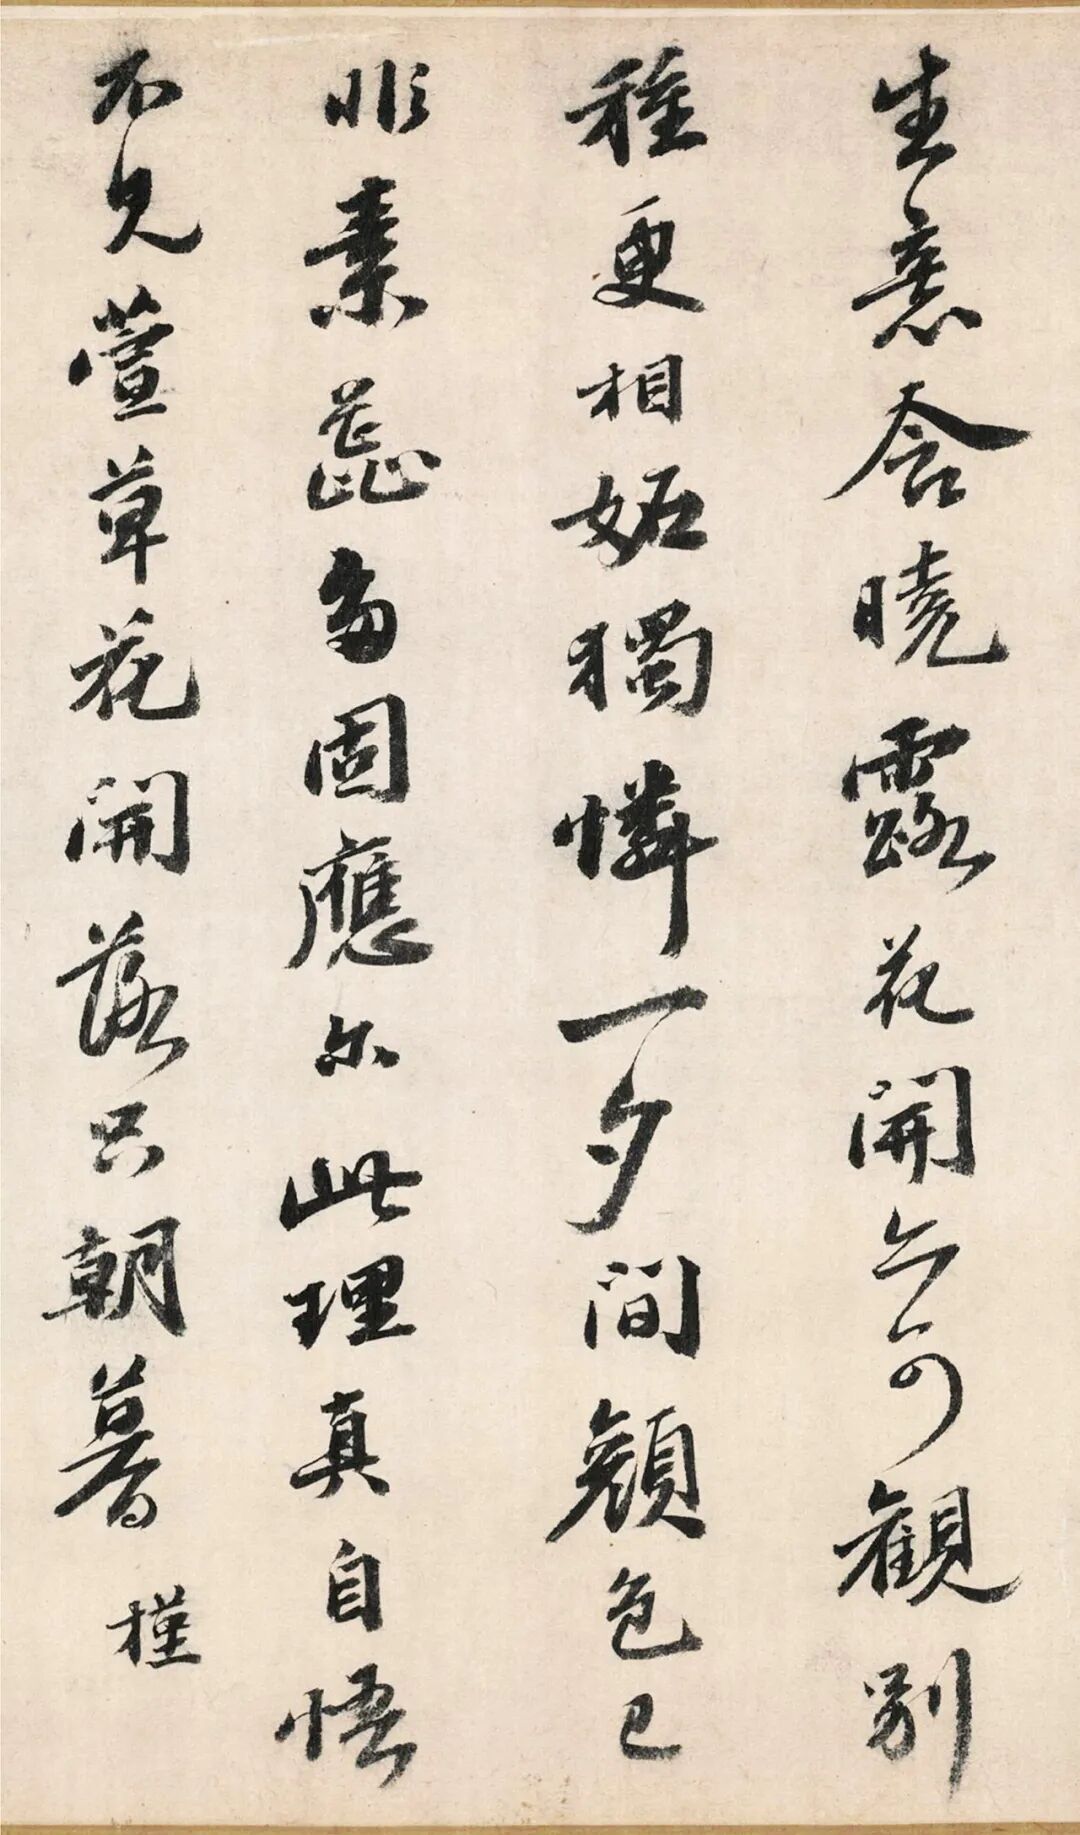 生意含曉露花開亦可觀別
種更相妬獨憐一夕間顏色已
非素蕊固應尔此理真自悟
不見萱草花開落只朝暮 槿